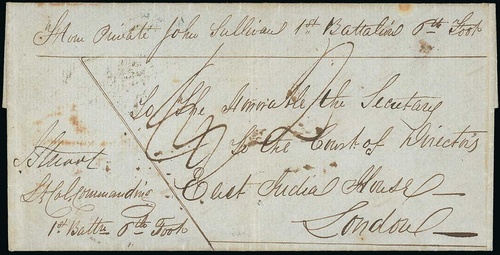 From Private John Sullivan 1st Battalion 6th Foot
To The Honorable the Secretary
To the Court of Directors
East India House
London
Lt Col Commanding
1st Battn 6th Foot